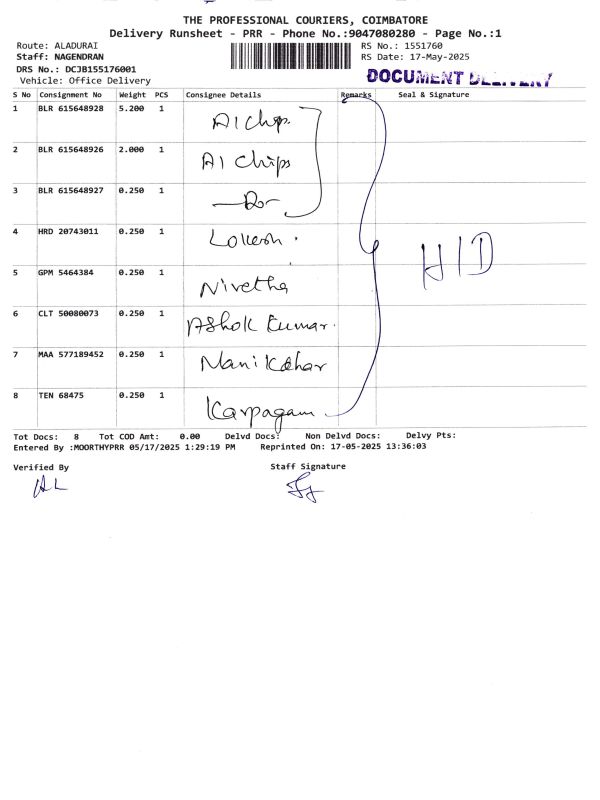 THE PROFESSIONAL COURIERS, COIMBATORE
Delivery Runsheet - PRR - Phone No.:9047080280 - Page No.:1
Route: ALADURAI RS No.: 1551760
Staff: NAGENDRAN RS Date: 17-May-2025
DRS No.: DCJB155176001
Vehicle: Office Delivery
DOCUMENT DELIVERY
S No Consignment No Weight PCS Consignee Details Remarks Seal & Signature
1 BLR 615648928 5.200 1 A1 Chip.
2 BLR 615648926 2.000 1 A1 Chips
3 BLR 615648927 0.250 1 —Do—
4 HRD 20743011 0.250 1 Lokesh.
5 GPM 5464384 0.250 1 Nivetha
6 CLT 50080073 0.250 1 Ashok Kumar.
7 MAA 577189452 0.250 1
8 TEN 68475 0.250 1 Karpagam
H/D
Tot Docs: 8 Tot COD Amt: 0.00 Delvd Docs: Non Delvd Docs: Delvy Pts:
Entered By :MOORTHYPRR 05/17/2025 1:29:19 PM Reprinted On: 17-05-2025 13:36:03
Verified By Staff Signature